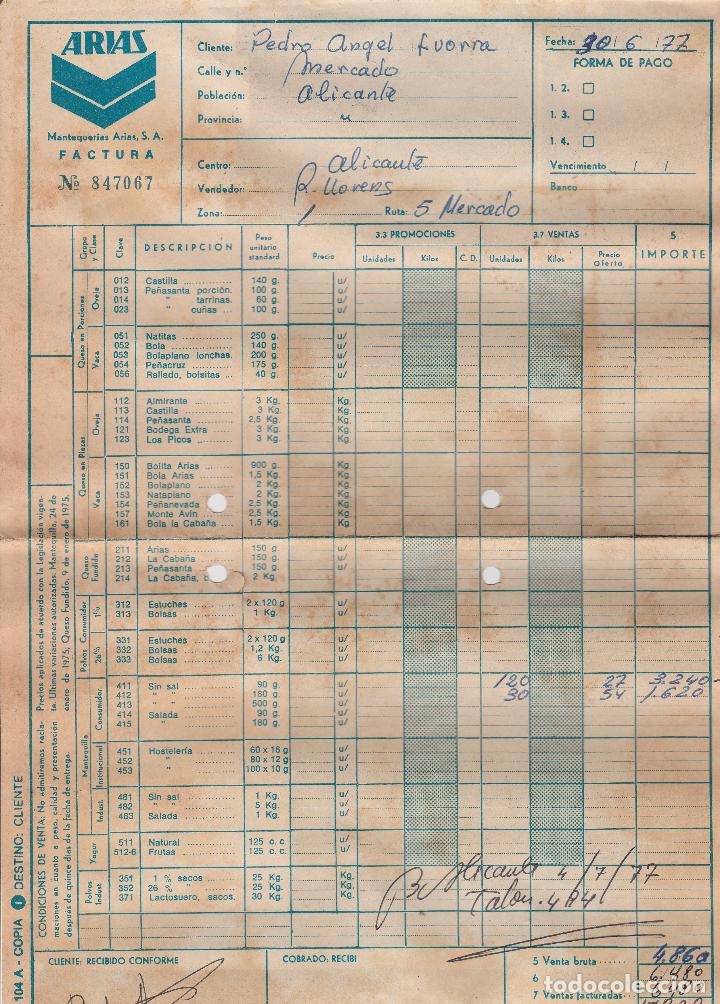 ARIAS
Mantequerías Arias, S. A.
FACTURA
Nº 847067
Cliente: Pedro Angel Ivorra
Calle y n.º Mercado
Población: Alicante
Provincia: "
Centro: Alicante
Vendedor: R. Llorens
Zona: 1 Ruta: 5 Mercado
Fecha: 30 / 6 / 77
FORMA DE PAGO
1. 2.
1. 3.
1. 4.
Vencimiento / /
Banco
Grupo y Clase Clave DESCRIPCION Peso unitario standard Precio 3.3 PROMOCIONES 3.7 VENTAS 5 IMPORTE
Unidades Kilos C. D. Unidades Kilos Precio Oferta
Queso en Porciones
Oveja
012 Castilla 140 g. u/
013 Peñasanta porción. 100 g. u/
014 " tarrinas. 60 g. u/
023 " cuñas 100 g. u/
Vaca
051 Natitas 250 g. u/
052 Bola 140 g. u/
053 Bolaplano lonchas. 200 g. u/
054 Peñacruz 175 g. u/
056 Rallado, bolsitas 40 g. u/
Queso en Piezas
Oveja
112 Almirante 3 Kg. Kg.
113 Castilla 3 Kg. Kg.
114 Peñasanta 2,5 Kg. Kg.
121 Bodega Extra 3 Kg. Kg.
123 Los Picos 3 Kg. Kg.
Vaca
150 Bolita Arias 900 g. Kg.
151 Bola Arias 1,5 Kg. Kg.
152 Bolaplano 2 Kg. Kg.
153 Nataplano 2 Kg. Kg.
154 Peñanevada 2,5 Kg. Kg.
157 Monte Avín 2,5 Kg. Kg.
161 Bola la Cabaña 1,5 Kg. Kg.
Queso Fundido
211 Arias 150 g. u/
212 La Cabaña 150 g. u/
213 Peñasanta 150 g. u/
214 La Cabaña, 2 Kg. u/
Polvos Consumidor
1%
312 Estuches 2 x 120 g u/
313 Bolsas 1 Kg. u/
26%
331 Estuches 2 x 120 g u/
332 Bolsas 1,2 Kg. u/
333 Bolsas 6 Kg. u/
Mantequilla
Consumidor
411 Sin sal 90 g. u/ 120 27 3.240-
412 " " 180 g. u/ 30 54 1.620
413 " " 500 g. u/
414 Salada 90 g. u/
415 " 180 g. u/
Institucional
451 Hostelería 60 x 16 g u/
452 " 80 x 12 g u/
453 " 100 x 10 g u/
Indust.
481 Sin sal 1 Kg. u/
482 " 5 Kg. u/
483 Salada 1 Kg. u/
Yogur
511 Natural 125 c. c. u/
512-6 Frutas 125 c. c. u/
Polvos Indust
351 1 % sacos 25 Kg. Kg.
352 26 % " 25 Kg. Kg.
371 Lactosuero, sacos. 30 Kg. Kg.
Alicante 4/7/77
Talon. 484
104 A - COPIA 1 DESTINO: CLIENTE
CONDICIONES DE VENTA: No admitiremos reclamaciones en cuanto a peso, calidad y presentación después de quince días de la fecha de entrega.
Precios aplicados de acuerdo con la Legislación vigente. Ultimas variaciones autorizadas: Mantequilla, 24 de enero de 1975; Queso Fundido, 9 de enero de 1975.
CLIENTE: RECIBIDO CONFORME
COBRADO: RECIBI
5 Venta bruta 4.860
6 6.480
7 Ventas facturadas
todocoleccion